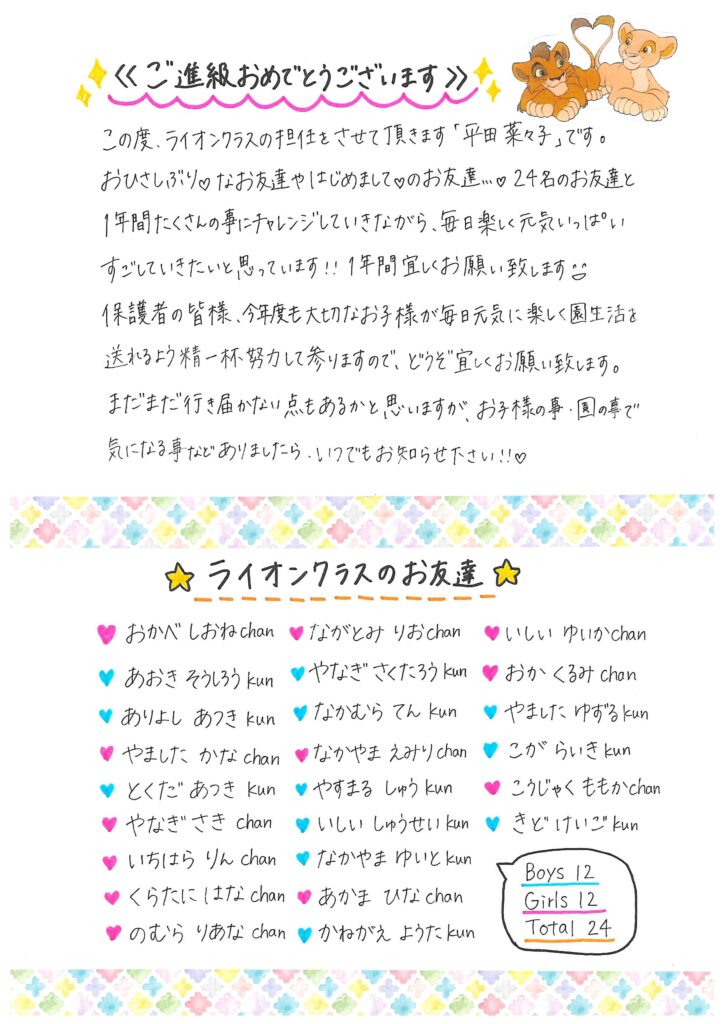 ≪ご進級おめでとうございます≫
この度、ライオンクラスの担任をさせて頂きます「平田 菜々子」です。
おひさしぶり♡なお友達やはじめまして♡のお友達…♡24名のお友達と
1年間たくさんの事にチャレンジしていきながら、毎日楽しく元気いっぱい
すごしていきたいと思っています!!1年間宜しくお願い致します
保護者の皆様、今年度も大切なお子様が毎日元気に楽しく園生活を
送れるよう精一杯努力して参りますので、どうぞ宜しくお願い致します。
まだまだ行き届かない点もあるかと思いますが、お子様の事・園の事で
気になる事などありましたら、いつでもお知らせ下さい!!♡
ライオンクラスのお友達
おかべ しおねchan ながとみ りおchan いしい ゆいかchan
あおき そうしろうkun やなぎ さくたろうkun おか くるみ chan
ありよし あつき kun なかむら てん kun やました ゆずるkun
やました かな chan なかやま えみりchan こが らいき kun
とくだ あつき kun やすまる しゅう kun こうじゃく ももかchan
やなぎ さき chan いしい しゅうせい kun きど けいご kun
いちはら りん chan なかやま ゆいと kun
くらたに はな chan あかま ひな chan
のむら りあな chan かねがえ ようた kun
Boys 12
Girls 12
Total 24